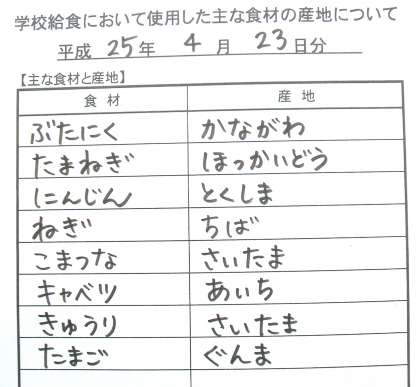 学校給食において使用した主な食材の産地について
平成 25 年 4 月 23 日分
【主な食材と産地】
食材 産地
ぶたにく かながわ
たまねぎ ほっかいどう
にんじん とくしま
ねぎ ちば
こまつな さいたま
キャベツ あいち
きゅうり さいたま
たまご ぐんま